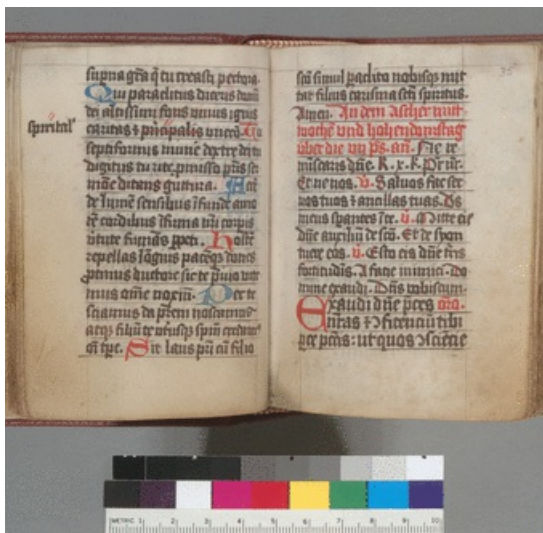 supna gra q tu creasti pectora.
Qui paraclitus diceris donū
dei altissimi fons viuus ignis
spirital'
caritas ⁊ pncipalis vnctio. Tu
septiformis mune dextre dei tu
digitus tu rite pmisso pris ser
mōe ditans guttura. Accē
de lumē sensibus īfunde amo
re cordibus īfirma nri corpis
virtute firmās ppeti. Hostē
repellas lōgius pacēq dones
ptinus ductore sic te puio vite
mus omē noxiū. Per te
sciamus da prēm noscamus
atq filiū te vtriusq spm credam
oī tpe. Sit laus pri cū filio
35
scō simul paclito nobisq mit
tat filius carisma scī spiritus.
Amen. An dem Ascher mit
woche vnd hohendonstag
vber die vii ps. an. Ne re
miniscaris dñe. K. x. K. Pr nr.
Et ne nos. v. Saluos fac ser
uos tuos ⁊ ancillas tuas. Ds
meus sperantes ī te. v. Mitte eis
dñe auxiliū de scō. Et de syon
tuere eos. v. Esto eis dñe tris
fortitudis. A facie inimici. Do
mine exaudi. Dñs vobiscum.
Exaudi dñe pces ora.
ꝯfitenciū tibi
pce pctis: ut quos ꝯsciēcie